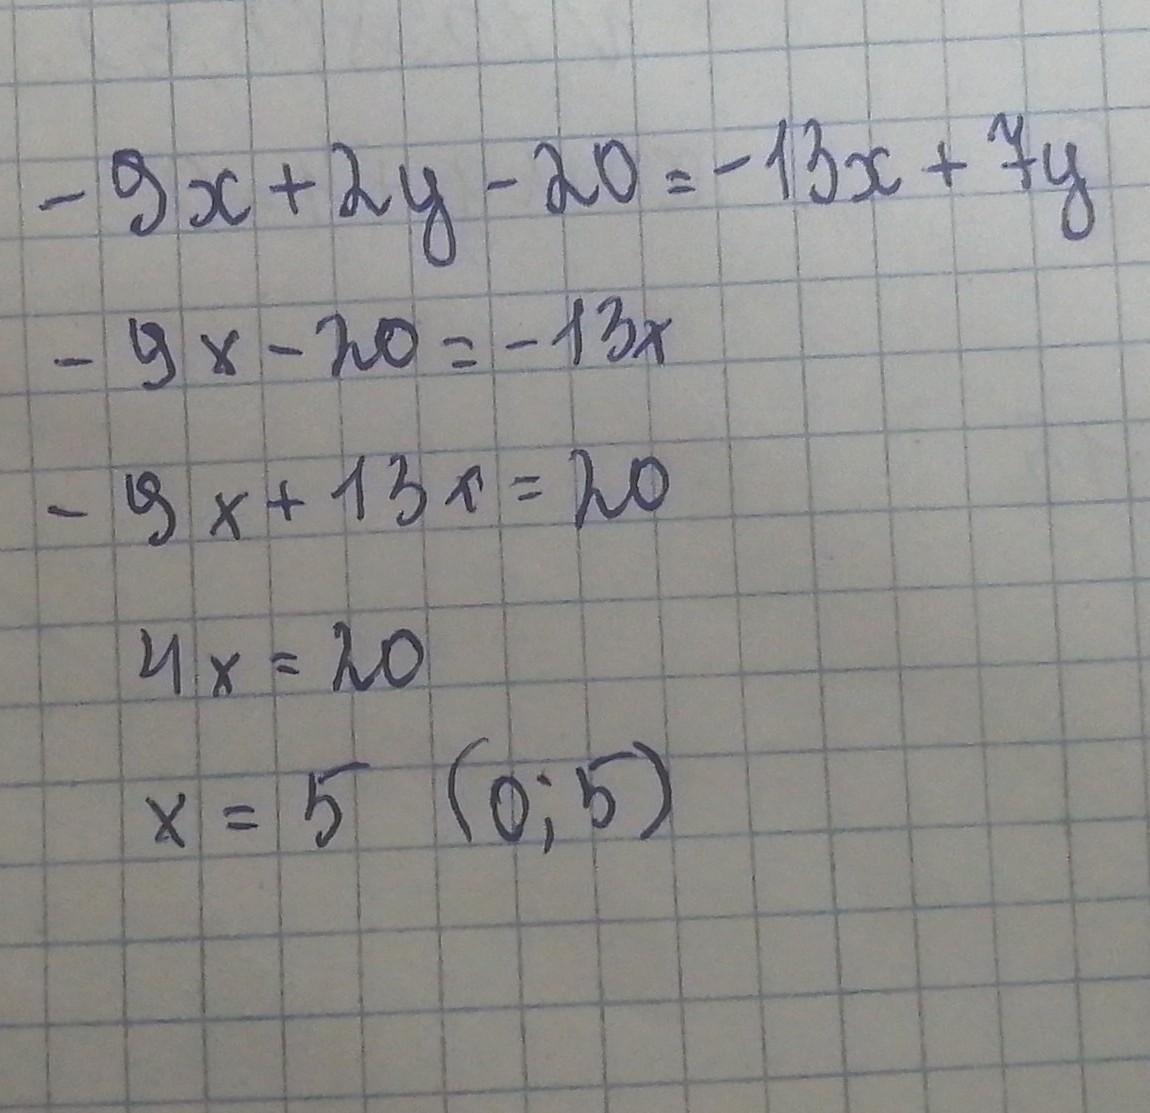 -9x+2y-20=-13x+7y
-9x-20=-13x
-9x+13x=20
4x=20
x=5 (0;5)